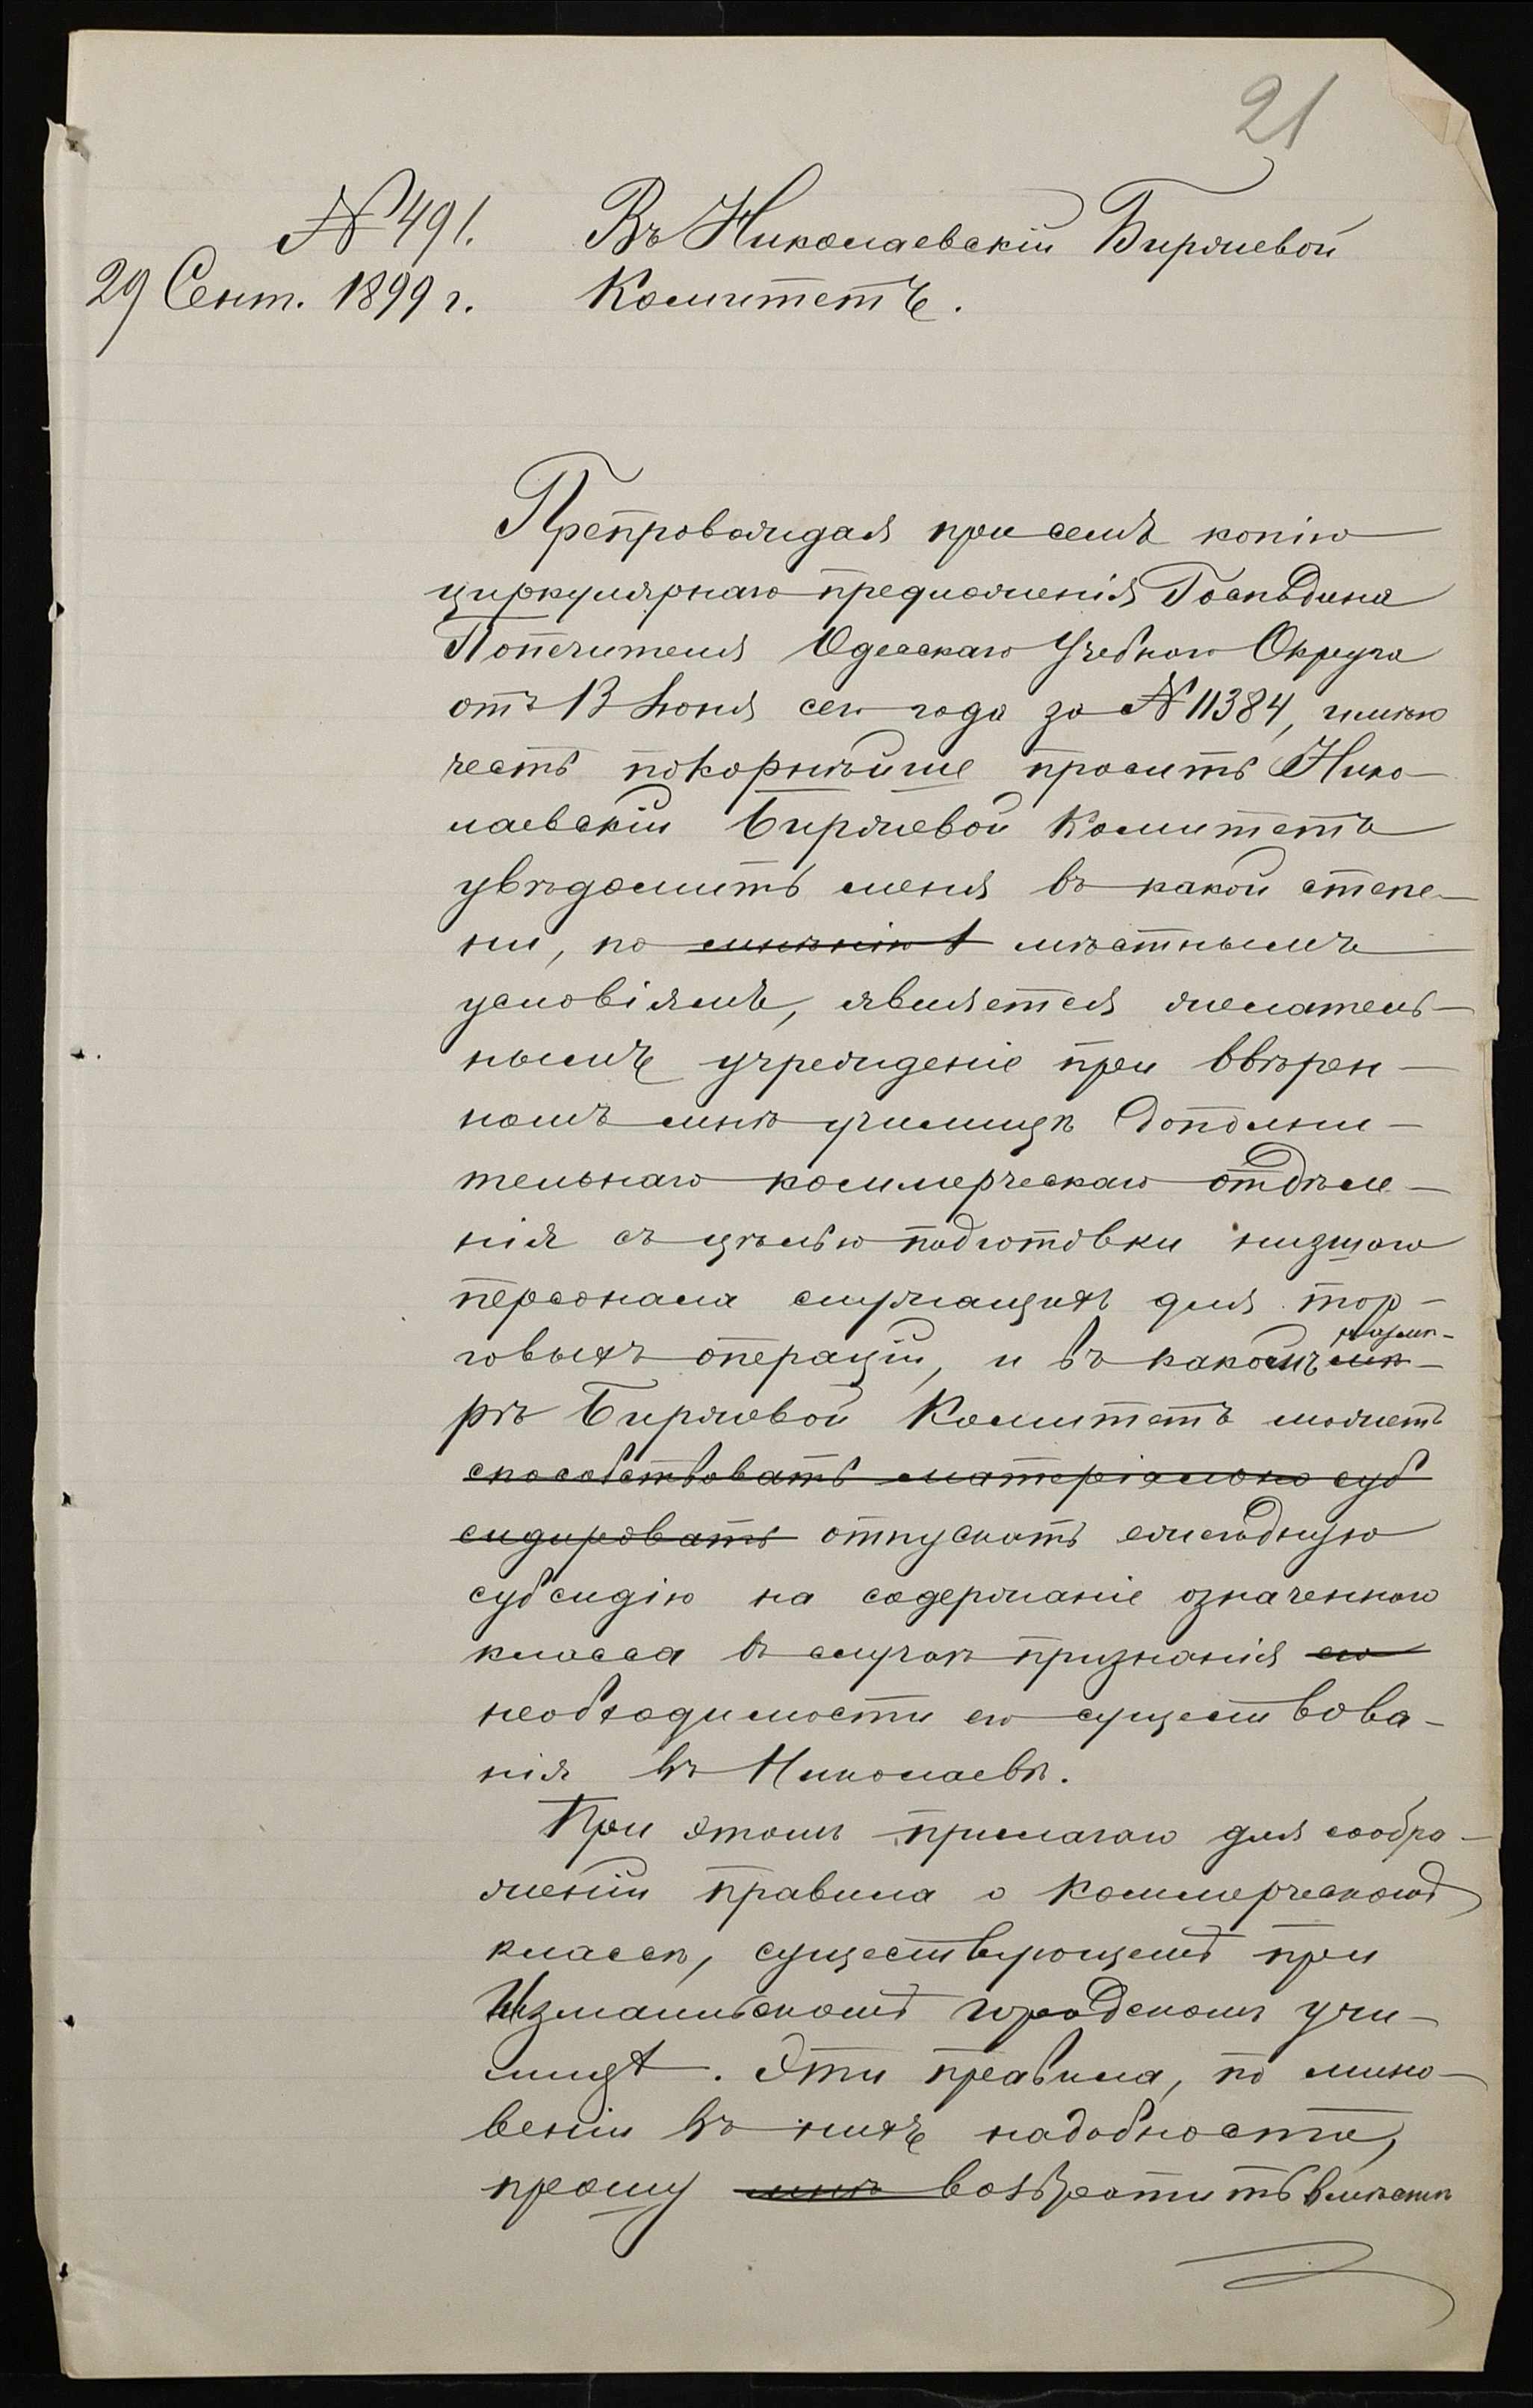 21
№ 491.
29 Сент. 1899 г.
Въ Николаевскій Биржевой
Комитетъ.
Препровождая при семъ копію
циркулярнаго предложенія Господина
Попечителя Одесскаго Учебнаго Округа
отъ 13 Іюня сего года за № 11384, имѣю
честь покорнѣйше просить Нико-
лаевскій Биржевой Комитетъ
увѣдомить меня въ какой степе-
ни, по мнѣнію мѣстнымъ
условіямъ, является желатель-
нымъ учрежденіе при ввѣрен-
номъ мнѣ училищѣ дополни-
тельнаго коммерческаго отдѣле-
нія съ цѣлью подготовки низшаго
персонала служащихъ для тор-
говыхъ операцій, и въ какомъ мѣ-
размѣ-
рѣ Биржевой Комитетъ можетъ
способствовать матеріально суб
сидировать отпускать ежегодную
субсидію на содержаніе означеннаго
класса въ случаѣ признанія его
необходимости его существова-
нія въ Николаевѣ.
При этомъ прилагаю для сообра-
женій правила о коммерческомъ
классѣ, существующемъ при
Измаильскомъ городскомъ учи-
лищѣ. Эти правила, по мино-
веніи въ нихъ надобности,
прошу мнѣ возвратить